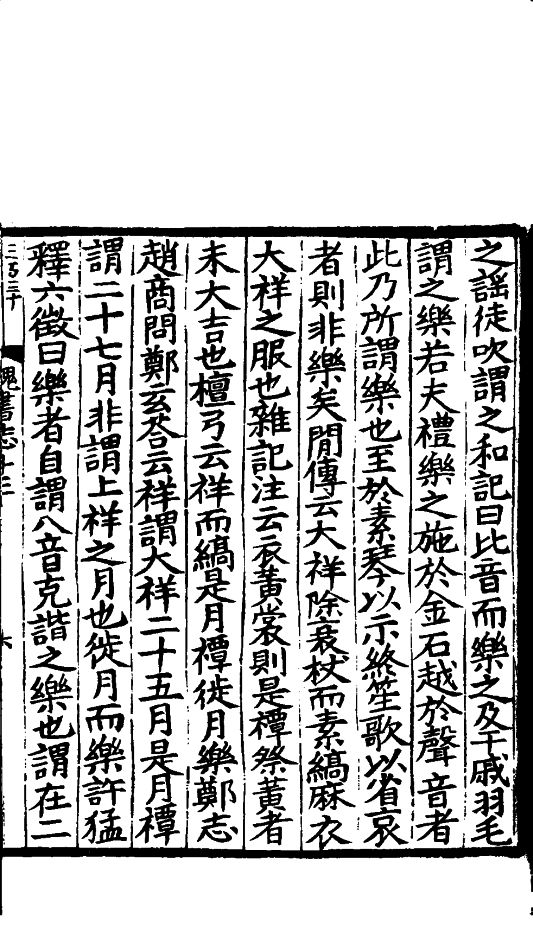 之謡徒吹謂之和記曰比音而樂之及干戚羽毛
謂之樂若夫禮樂之施於金石越於聲音者
此乃所謂樂也至於素琴以示終笙歌以省哀
者則非樂矣閒傳云大祥除衰杖而素縞麻衣
大祥之服也雜記注云玄黃裳則是禫祭黃者
未大吉也檀弓云祥而縞是月禫徙月樂鄭志
趙商問鄭玄荅云祥謂大祥二十五月是月禫
謂二十七月非謂上祥之月也徙月而樂許猛
釋六徵曰樂者自謂八音克諧之樂也謂在二
魏書志十三
六